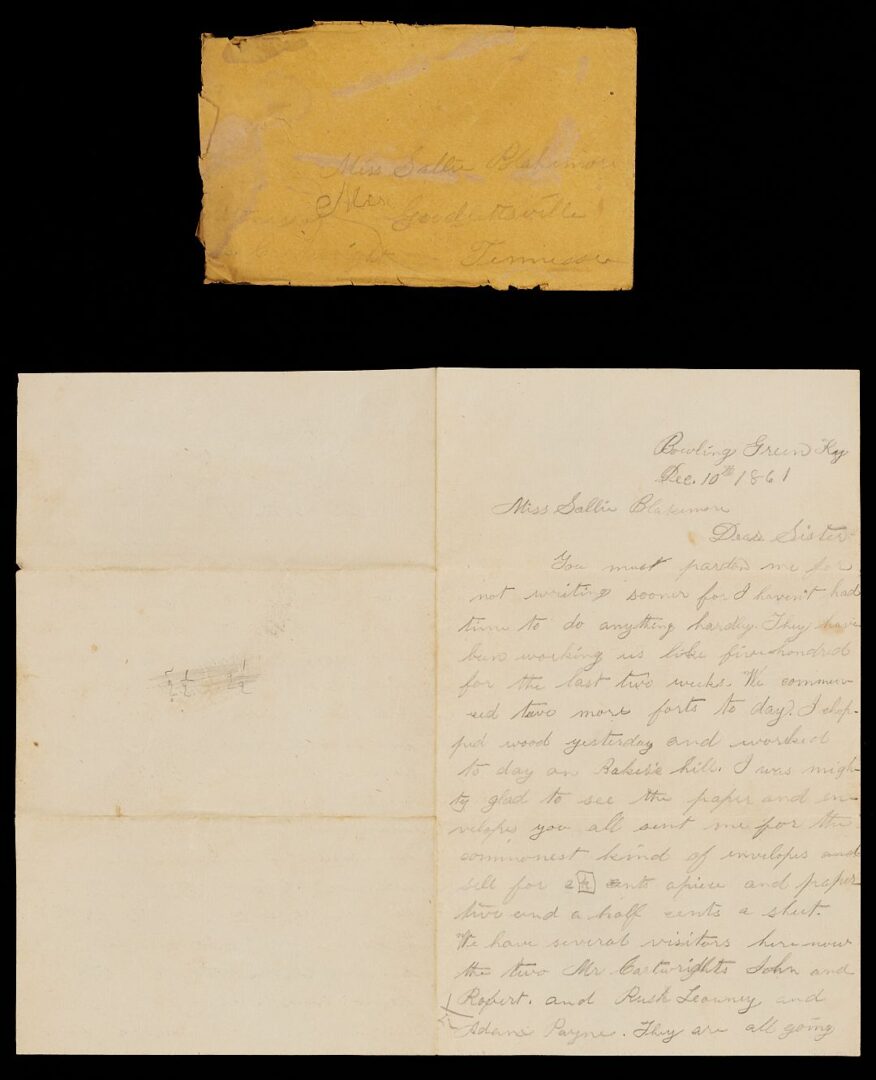 Miss Sallie Blakemore
Miss Goodlettsville
Tennessee
Bowling Green Ky
Dec. 10th 1861
Miss Sallie Blakemore
Dear Sister
You must pardon me for
not writing sooner for I haven't had
time to do anything hardly. They have
ben working us like five hundred
for the last two weeks. We commen-
ced two more forts to day. I chop-
ped wood yesterday and worked
to day on Baker's hill. I was migh-
ty glad to see the paper and en-
velopes you all sent me for the
commonest kind of envelopes and
sell for cents apiece and paper
two and a half cents a sheet.
We have several visitors here now
the two Mr Cartwrights John and
Robert. and Rush and
Adam Payne. They are all going